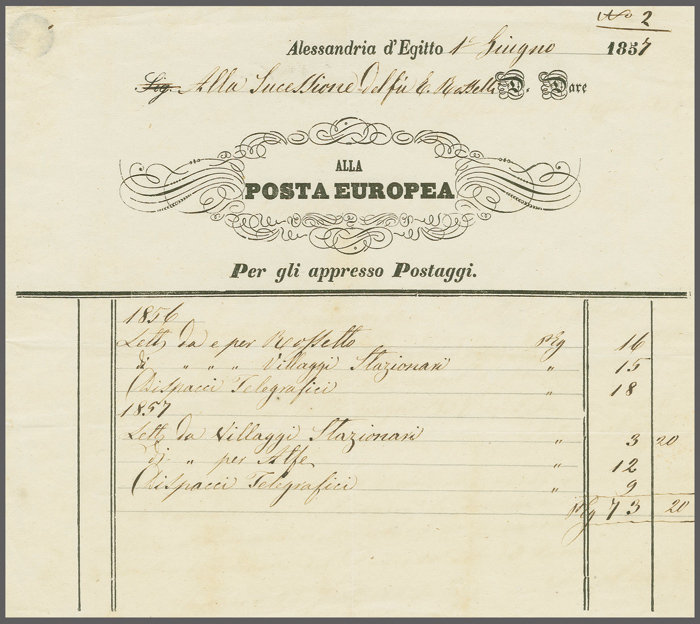 No 2
Alessandria d'Egitto 1° Giugno 1857
Sig. Alla Sucessione del fù E. Rossetti D. Dare
ALLA
POSTA EUROPEA
Per gli appresso Postaggi.
1856
Lett da e per Rossetto 16
di " " " Villaggi Stazionari " 15
Dispacci Telegrafici " 18
1857
Lett da Villaggi Stazionari " 3 20
di " per Alfe " 12
Dispacci Telegrafici " 9
73 20